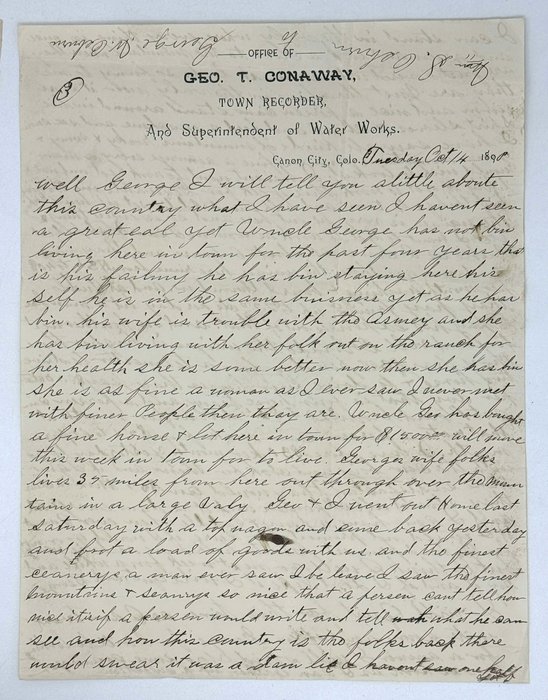 George W. Coburn
to
S. Coburn
3
OFFICE OF
GEO. T. CONAWAY,
TOWN RECORDER,
And Superintendent of Water Works.
Canon City, Colo. Tuesday Oct 14 1890
well George I will tell you alittle aboute
this country what I have seen I havent seen
a great eal yet Uncle George has not bin
living here in town for the past four years that
is his failmy he has bin staying here his
self he is in the same buisness yet as he has
bin. his wife is trouble with the asmey and she
has bin living with her folk out on the ranch for
her health she is some better now then she has bin
she is as fine a woman as I ever saw I never met
with finer People then they are. Uncle Geo has bought
a fine house & lot here in town for $1500 will move
this week in town for to live. Georges wife folks
lives 37 miles from here out through over the Moun
tains in a large valy Geo & I went out Home last
Saturday with a top wagon and come back yesterday
and brot a load of goods with us and the finest
ceanerys a man ever saw I be leave I saw the finest
mountins & seanrys so nice that a person cant tell how
nice it is if a person would write and tell what he can
see and how this country is the folks back there
would swear it was a dam lie I havent saw one half